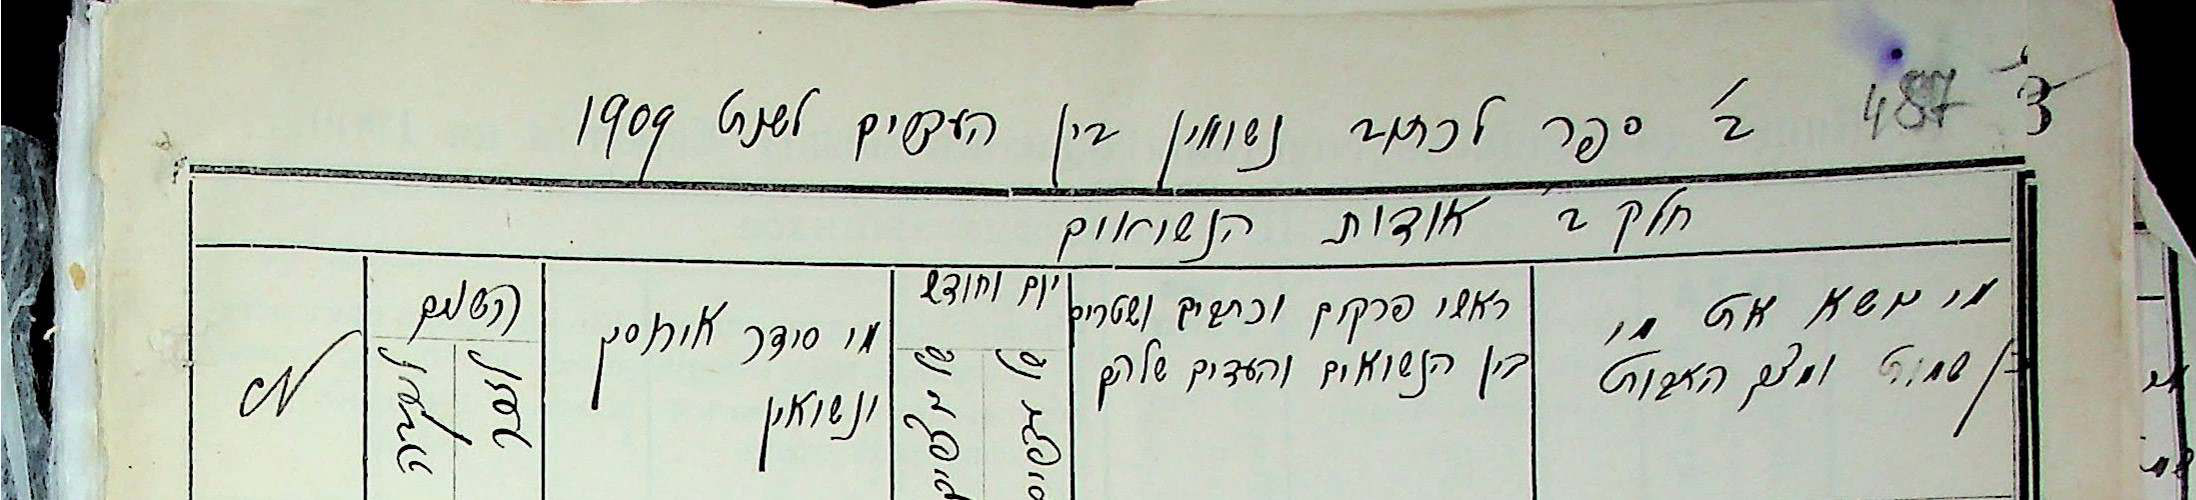 487
ב׳ ספר לכתוב נשואין בין העברים לשנת 1909
חלק ב׳ אודות הנשואים
מי נשא את מי
בן שמות ומצב האבות
ראשי פרקים וכתבים ושטרים
בין הנשואים והעדים שלהם
יום וחודש
של
של
מי סידר אירוסין
ונשואין
השנים
№